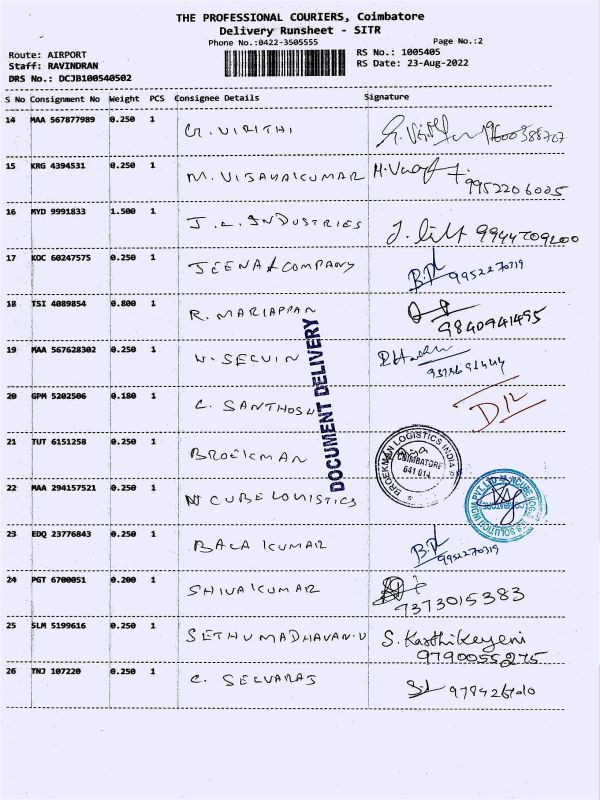 THE PROFESSIONAL COURIERS, Coimbatore
Delivery Runsheet - SITR
Phone No.:0422-3505555 Page No.:2
Route: AIRPORT RS No.: 1005405
Staff: RAVINDRAN RS Date: 23-Aug-2022
DRS No.: DCJB100540502
S No Consignment No Weight PCS Consignee Details Signature
14 MAA 567877989 0.250 1 G. VIRITHI
15 KRG 4394531 0.250 1 M. VISAYAKUMAR 9952206005
16 MYD 9991833 1.500 1 J.L. INDUSTRIES 9944709200
17 KOC 60247575 0.250 1 JEENA & COMPANY 9952270719
18 TSI 4089854 0.800 1 R. MARIAPPAN 9840941495
19 MAA 567628302 0.250 1 N. SELVIN
20 GPM 5202506 0.180 1 C. SANTHOSH
21 TUT 6151258 0.250 1 BROEKMAN
22 MAA 294157521 0.250 1 N CUBE LOGISTICS
23 EDQ 23776843 0.250 1 BALA KUMAR 9952270719
24 PGT 6700051 0.200 1 SHIVAKUMAR 9373015383
25 SLM 5199616 0.250 1 SETHUMADHAVAN.V S. Karthikeyeni
9790055275
26 TNJ 107220 0.250 1 C. SELVARAJ
DOCUMENT DELIVERY
BROEKMAN LOGISTICS INDIA
COIMBATORE
641 014